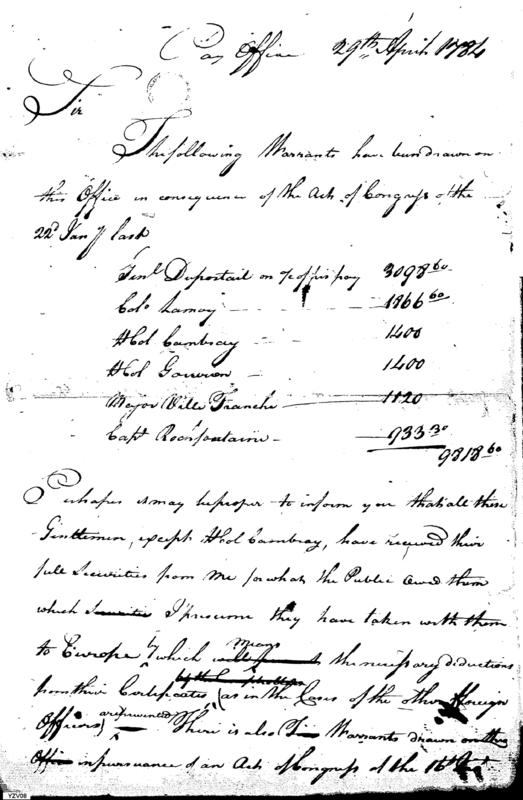 Pay Office 29th April 1784
Sir
The following Warrants have been drawn on
this Office in consequence of the Act of Congress of the
22d Jany last
Genl Duportail on a/c of his pay 3098 60
Colo Lamoy 1866 60
Lt Col Cambray 1400
Lt Col Gouvion 1400
Major Ville Franche 1120
Capt Rochfontaine 933 30
9818 60
Perhaps it may be proper to inform you that all these
Gentlemen, except Lt Col Cambray, have received their
full Securities from me for what the Public owed them
which Securities I presume they have taken with them
to Europe by which Means the necessary deductions
from their Certificates (as in the Cases of the other Foreign
Officers) are prevented There is also Warrants drawn on this
Office in pursuance of an Act of Congress of the 16th
YZV08